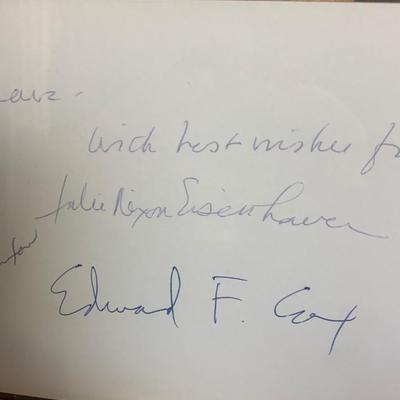 with best wishes
Julie Nixon Eisenhower
Edward F. Cox